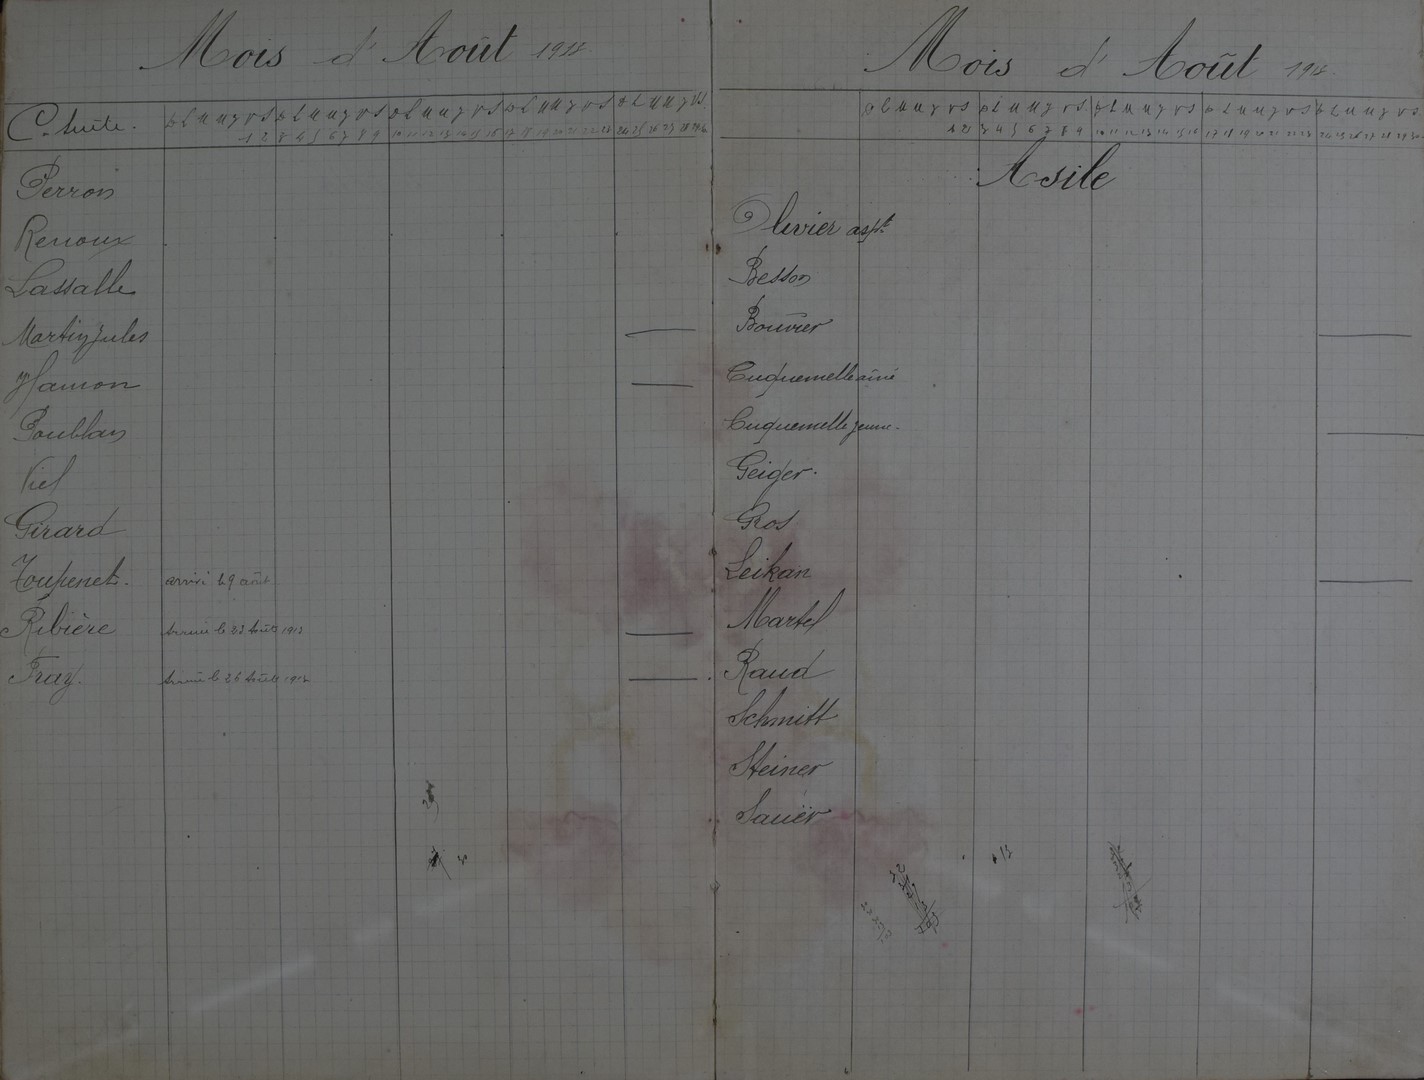 Mois d'Août 1913
C. Suite.
D L M M J V S D L M M J V S D L M M J V S D L M M J V S D L M M J V S
1 2 3 4 5 6 7 8 9 10 11 12 13 14 15 16 17 18 19 20 21 22 23 24 25 26 27 28 29 30
Perron
Renoux
Lassalle
Martin Jules
Hamon
Poublan
Viel
Girard
Toupenet. arrivé le 9 août
Ribière Arrivé le 23 Août 1913
Fray. Arrivé le 26 Août 1913
Mois d'Août 1913
D L M M J V S D L M M J V S D L M M J V S D L M M J V S D L M M J V S
1 2 3 4 5 6 7 8 9 10 11 12 13 14 15 16 17 18 19 20 21 22 23 24 25 26 27 28 29 30
Asile
Olivier aspt
Besson
Bouvier
Cuquemelle aîné
Cuquemelle jeune.
Geiger.
Gros
Leikan
Martel
Raud
Schmitt
Steiner
Sauër